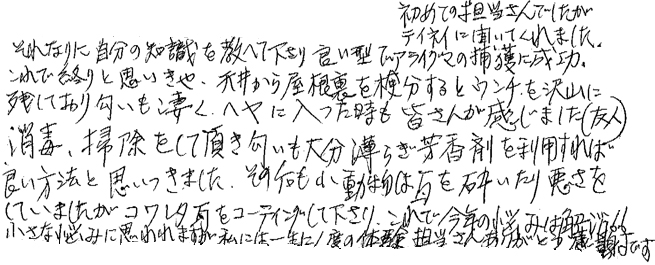 初めての担当さんでしたが
テイネイに聞いてくれました。
それなりに自分の知識を教べて下さり 良い型でアライグマの捕獲に成功。
これで終りと思いきや、天井から屋根裏を検分するとウンチを沢山に
残しており匂いも凄く、ヘヤに入った時も皆さんが感じました(友人)
消毒、掃除をして頂き匂いも大分薄らぎ芳香剤を利用すれば
良い方法と思いつきました。その他も小動物は瓦を砕いたり悪さを
していましたがコワレタ瓦をコーティングして下さり、これで今年の悩みは解消!!
小さな悩みに思われますが私には一生に1度の体験 担当さんありがとう 感謝です